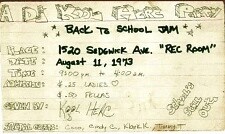 A DJ KOOL HERC PARTY
BACK TO SCHOOL JAM
PLACE: 1520 SEDGWICK AVE. "REC ROOM"
DATE: AUGUST 11, 1973
TIME: 9:00 PM to 4:00 am
$ .25 LADIES
$ .50 FELLAS
GIVEN BY: KOOL HERC
SPECIAL GUESTS: Coco, Cindy C., Klark K., Timmy T.